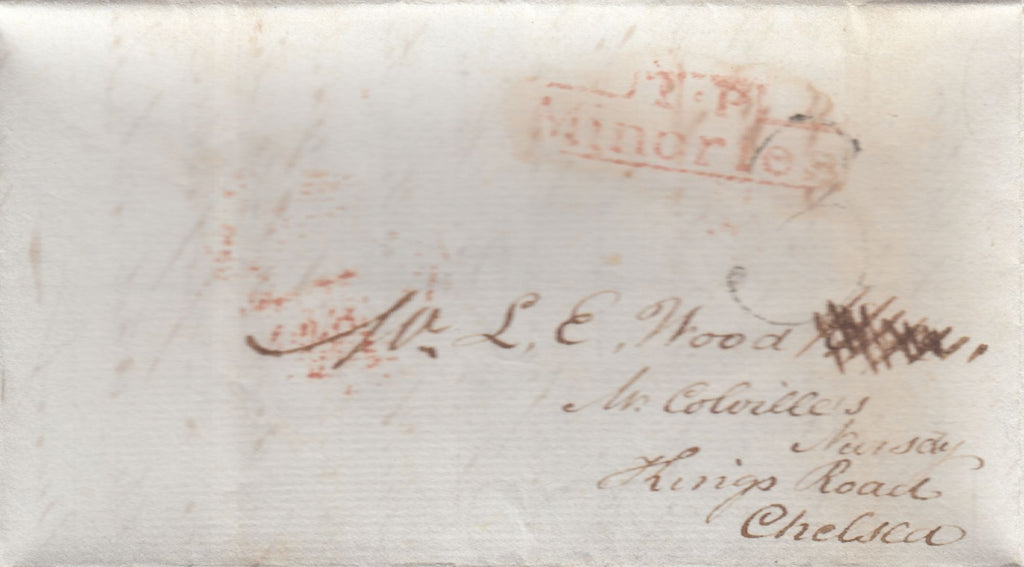 T.P
Minories
Mr. L. E. Wood
Mr. Colville's
Nursdy
Kings Road
Chelsea